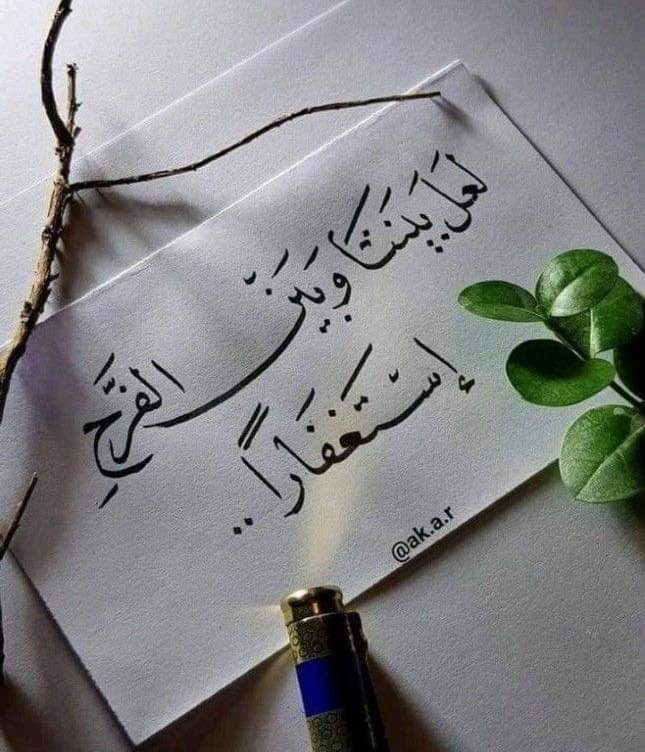 لعَل بَينَنا وبَينَ الفَرَحِ
إستَغفَاراً..
@ak.a.r